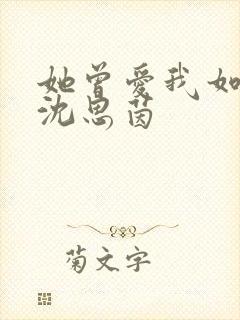 她曾爱我如
沈思茵
菊文字